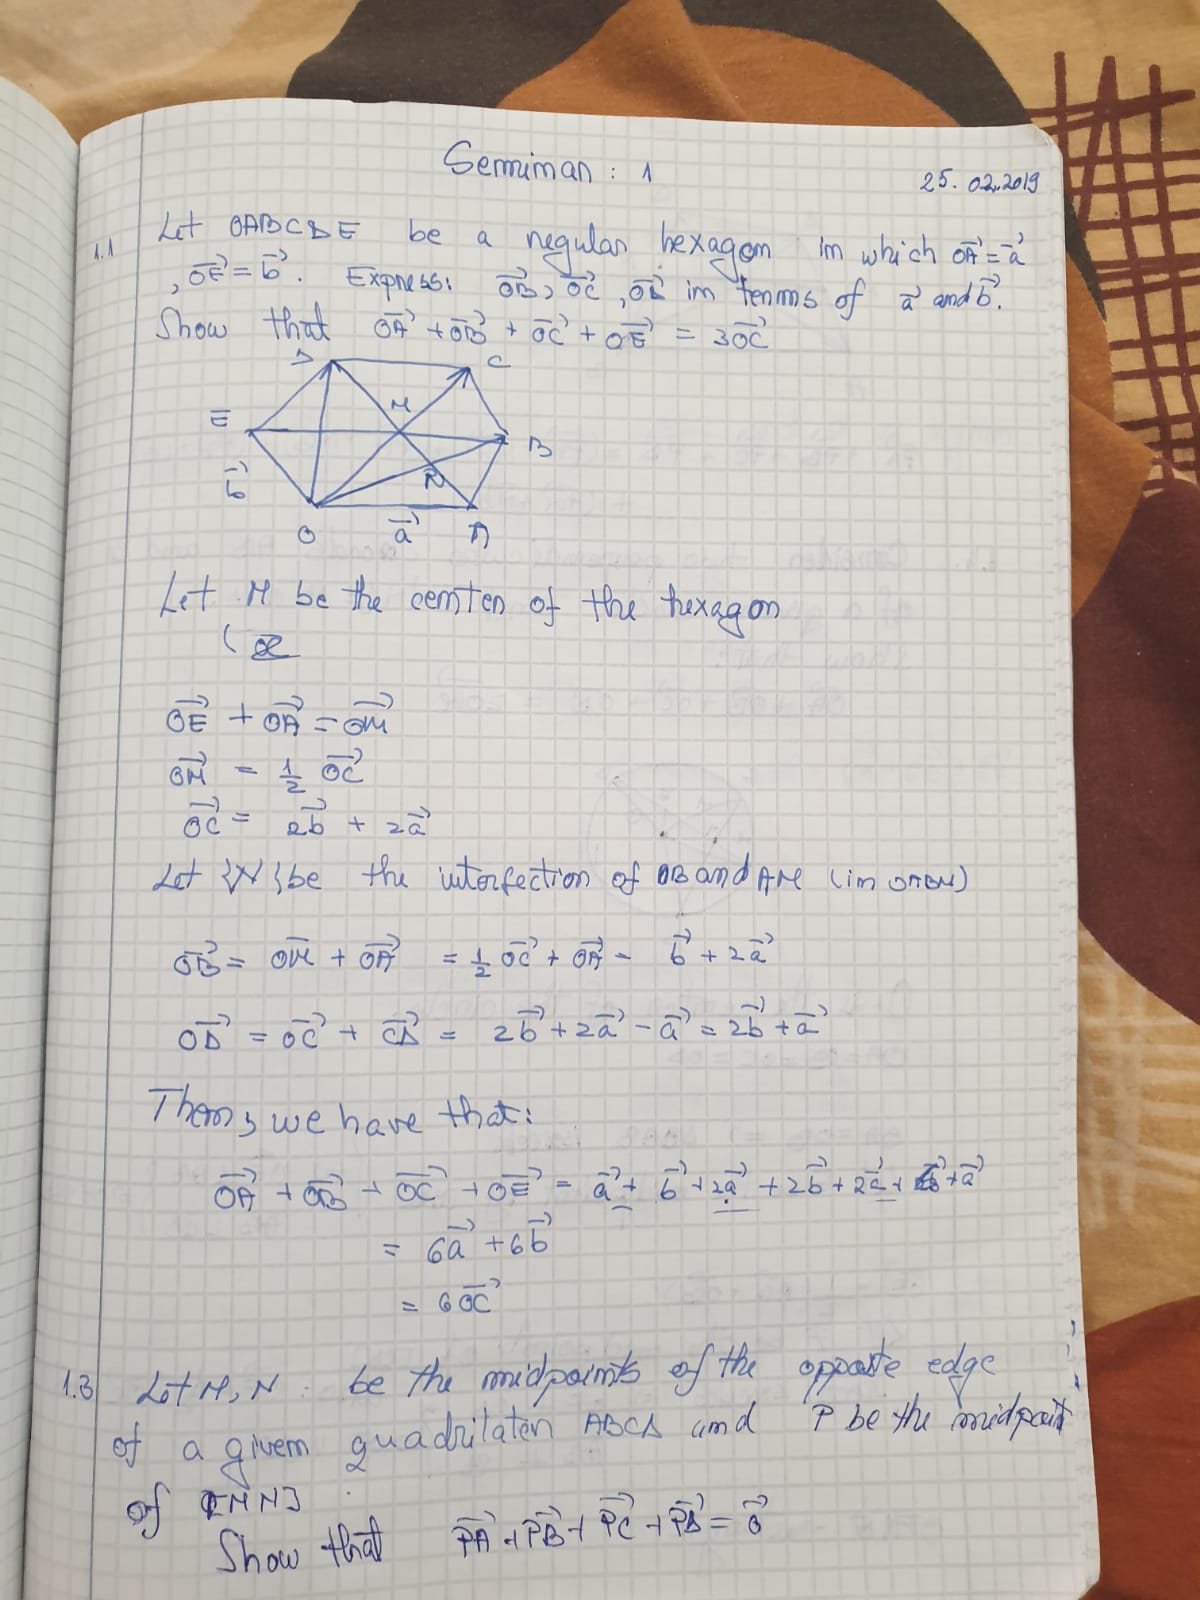 Seminar : 1
25.02.2019
1.1 Let OABCDE be a regular hexagon in which OA⃗ = a⃗
, OE⃗ = b⃗. Express: OB⃗, OC⃗, OD⃗ in terms of a⃗ and b⃗.
Show that OA⃗ + OB⃗ + OC⃗ + OE⃗ = 3OC⃗
D C
E M B
b⃗ N
O a⃗ A
Let M be the center of the hexagon
(
OE⃗ + OA⃗ = OM⃗
OM⃗ = 1/2 OC⃗
OC⃗ = 2b⃗ + 2a⃗
Let {N} be the interfection of OB and AM (in OABM)
OB⃗ = OM⃗ + OA⃗ = 1/2 OC⃗ + OA⃗ - b⃗ + 2a⃗
OD⃗ = OC⃗ + CD⃗ = 2b⃗ + 2a⃗ - a⃗ = 2b⃗ + a⃗
Then, we have that:
OA⃗ + OB⃗ + OC⃗ + OE⃗ = a⃗ + b⃗ + 2a⃗ + 2b⃗ + 2a⃗ + + a⃗
= 6a⃗ + 6b⃗
= 6OC⃗
1.3 Let M, N be the midpoints of the opposite edge
of a given quadrilater ABCD and P be the midpoit
of [MN]
Show that PA⃗ + PB⃗ + PC⃗ + PD⃗ = 0⃗